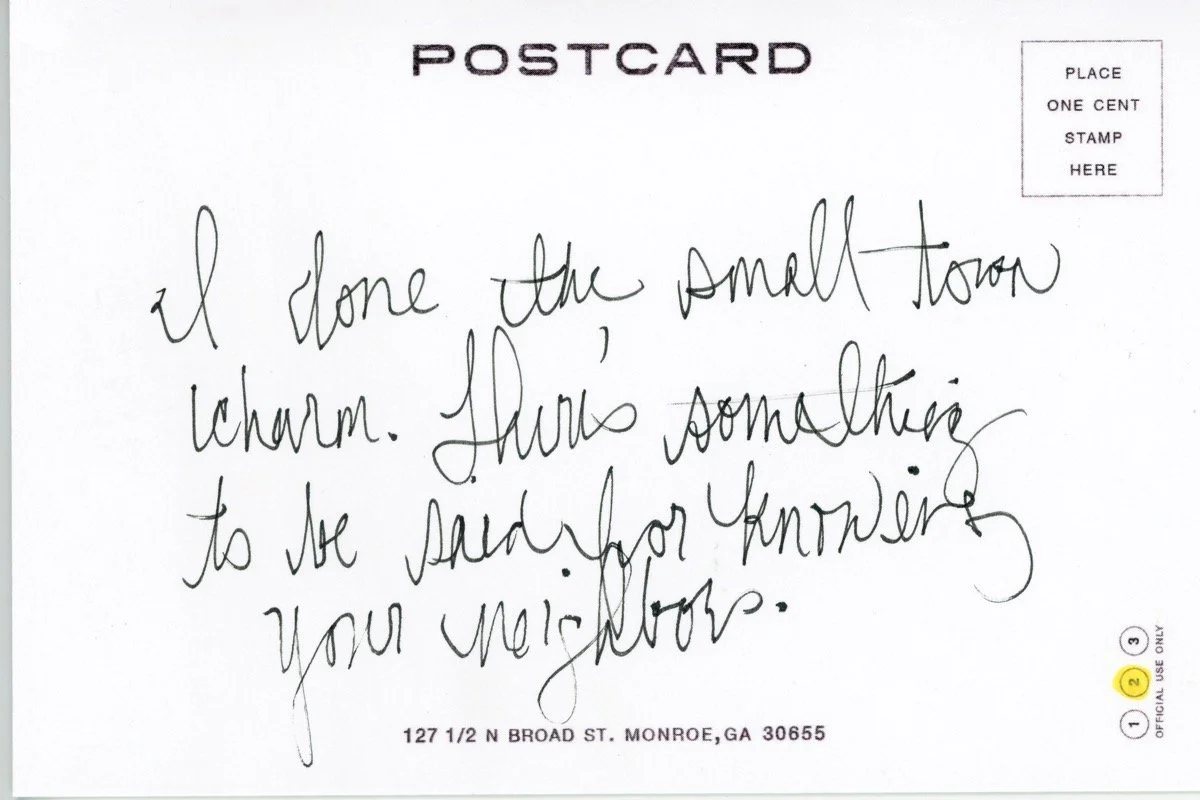 POSTCARD
PLACE
ONE CENT
STAMP
HERE
I done the small town
charm. There's something
to be said for knowing
your neighbors.
127 1/2 N BROAD ST. MONROE,GA 30655
1 2 3
OFFICIAL USE ONLY